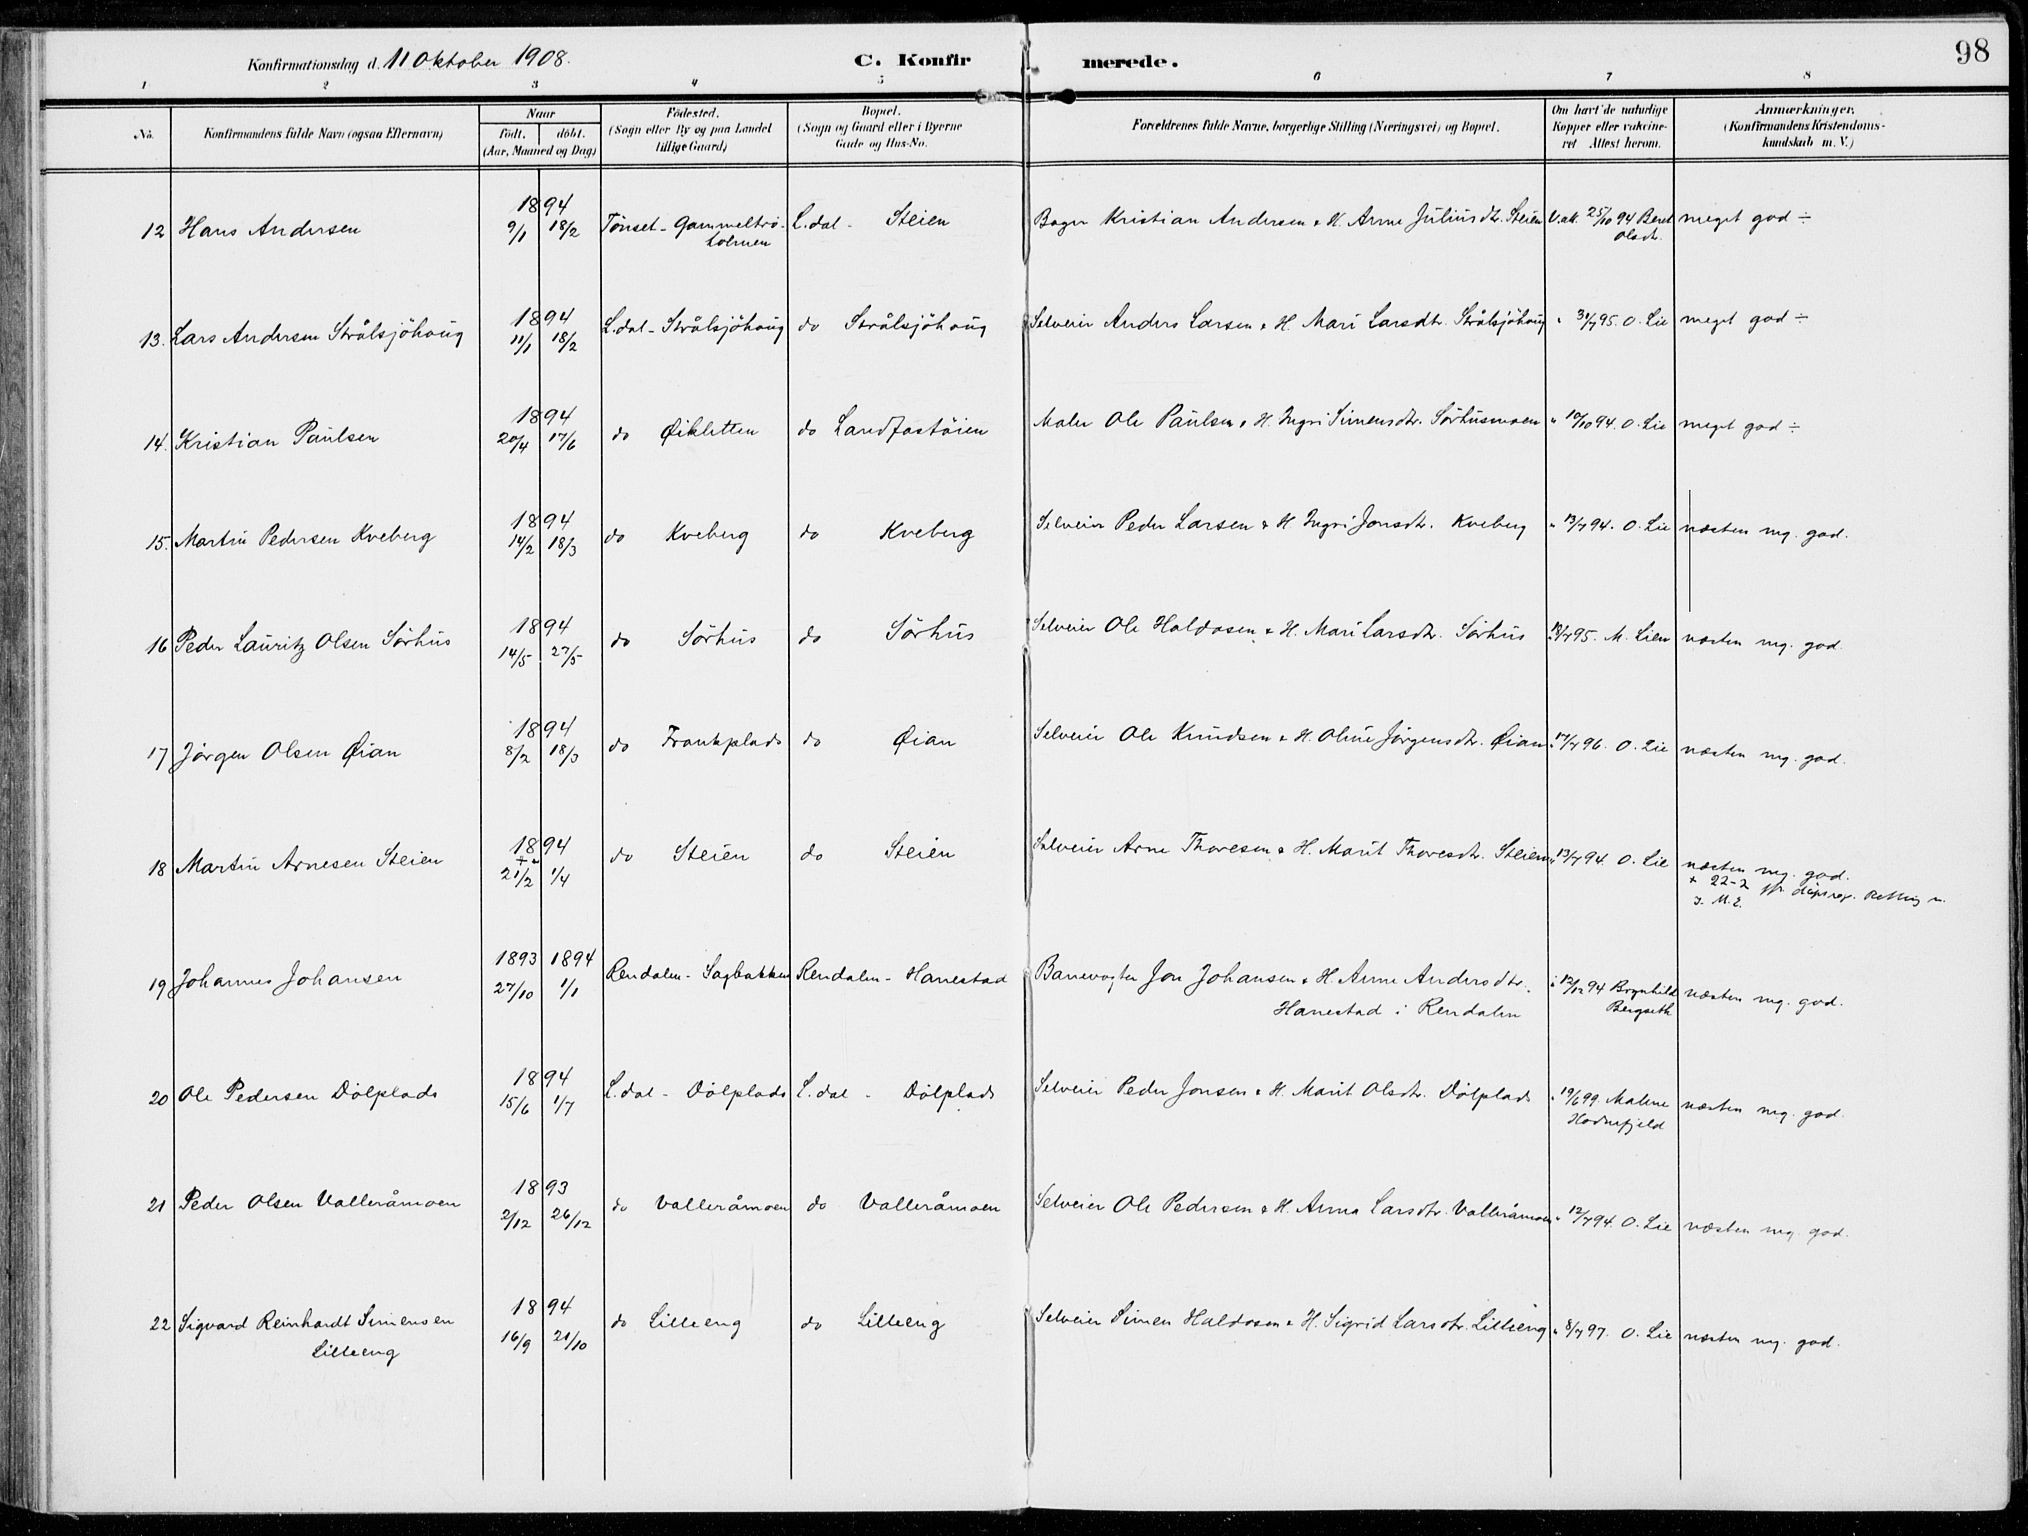 Konfirmationsdag d. 11 Oktober 1908.
C. Konfirmerede.
98
1 2 3 4 5 6 7 8
No.
Konfirmandens fulde Navn (ogsaa Efternavn)
Naar
födt. döbt.
(Aar, Maaned og Dag)
Födested.
(Sogn eller By og paa Landet
tillige Gaard)
Bopæl.
(Sogn og Gaard eller i Byerne
Gade og Hus-No.
Forældrenes fulde Navne, borgerlige Stilling (Næringsvei) og Bopæl.
Om havt de naturlige
Kopper eller vakcine-
ret Attest herom.
Anmærkninger.
(Konfirmandens Kristendoms-
kundskab m. V.)
12 Hans Andersen 1894 9/1 18/2 Tönset - Gammeltrö- L.dal - Steien Kristian Andersen & H. Anne Juliusdtr. Steien V.att. 25/10 94 Beret meget god ÷
holmen
Olsdtr.
13. Lars Andersen Strålsjöhaug 1894 11/1 18/2 L.dal - Strålsjöhaug do Strålsjöhaug Selveier Anders Larsen & H. Mari Larsdtr. Strålsjöhaug " 31/7 95. O. Lie meget god ÷
14. Kristian Paulsen 1894 20/4 17/6 do Øikletten do Maler Ole Paulsen & H. Ingri Simensdtr. Sörhusmoen " 10/10 94. O. Lie meget god ÷
15. Martin Pedersen Kveberg 1894 14/2 18/3 do Kveberg do Kveberg Selveier Peder Larsen & H Ingri Jonsdtr. Kveberg " 13/7 94. O. Lie næsten mg. god.
16 Peder Lauritz Olsen Sörhus 1894 14/5 27/5 do Sörhus do Sörhus Selveier Ole Haldosen & H. Mari Larsdtr. Sörhus 18/7 95. M. Lien næsten mg. god.
17 Jörgen Olsen Øian 1894 8/2 18/3 do Frankplads do Øian Selveier Ole Knudsen & H. Oline Jörgensdtr. Øian " 17/7 96. O. Lie næsten mg. god.
18 Martin Arnesen Steien 1894 + 21/2 1/4 do Steien do Steien Selveier Arne Thoresen & H. Marit Thoresdtr. Steien " 13/7 94. O. Lie næsten mg. god.
+ 22-2
19 Johannes Johansen 1893 27/10 1894 1/1 Rendalen - Sagbakken Rendalen - Hanestad Banevogter Jon Johansen & H. Anne Andersdtr. " 12/12 94 Brynhild næsten mg. god.
Hanestad i Rendalen
Bergseth
20 Ole Pedersen Dölplads 1894 15/6 1/7 L.dal - Dölplads L.dal - Dölplads Selveier Peder Jonsen & H. Marit Olsdtr. Dölplads " 19/6 99. Malene næsten mg. god.
Hodnefjeld
21 Peder Olsen Valleråmoen 1893 2/12 26/12 do Valleråmoen do Valleråmoen Selveier Ole Pedersen & H. Anna Larsdtr. Valleråmoen " 12/7 94. O. Lie næsten mg. god.
22 Sigvard Reinhardt Simensen 1894 16/9 21/10 do Lilleeng do Lilleeng Selveier Simen Haldosen & H. Sigrid Larsdtr. Lilleeng " 8/7 97. O. Lie næsten mg. god.
Lilleeng